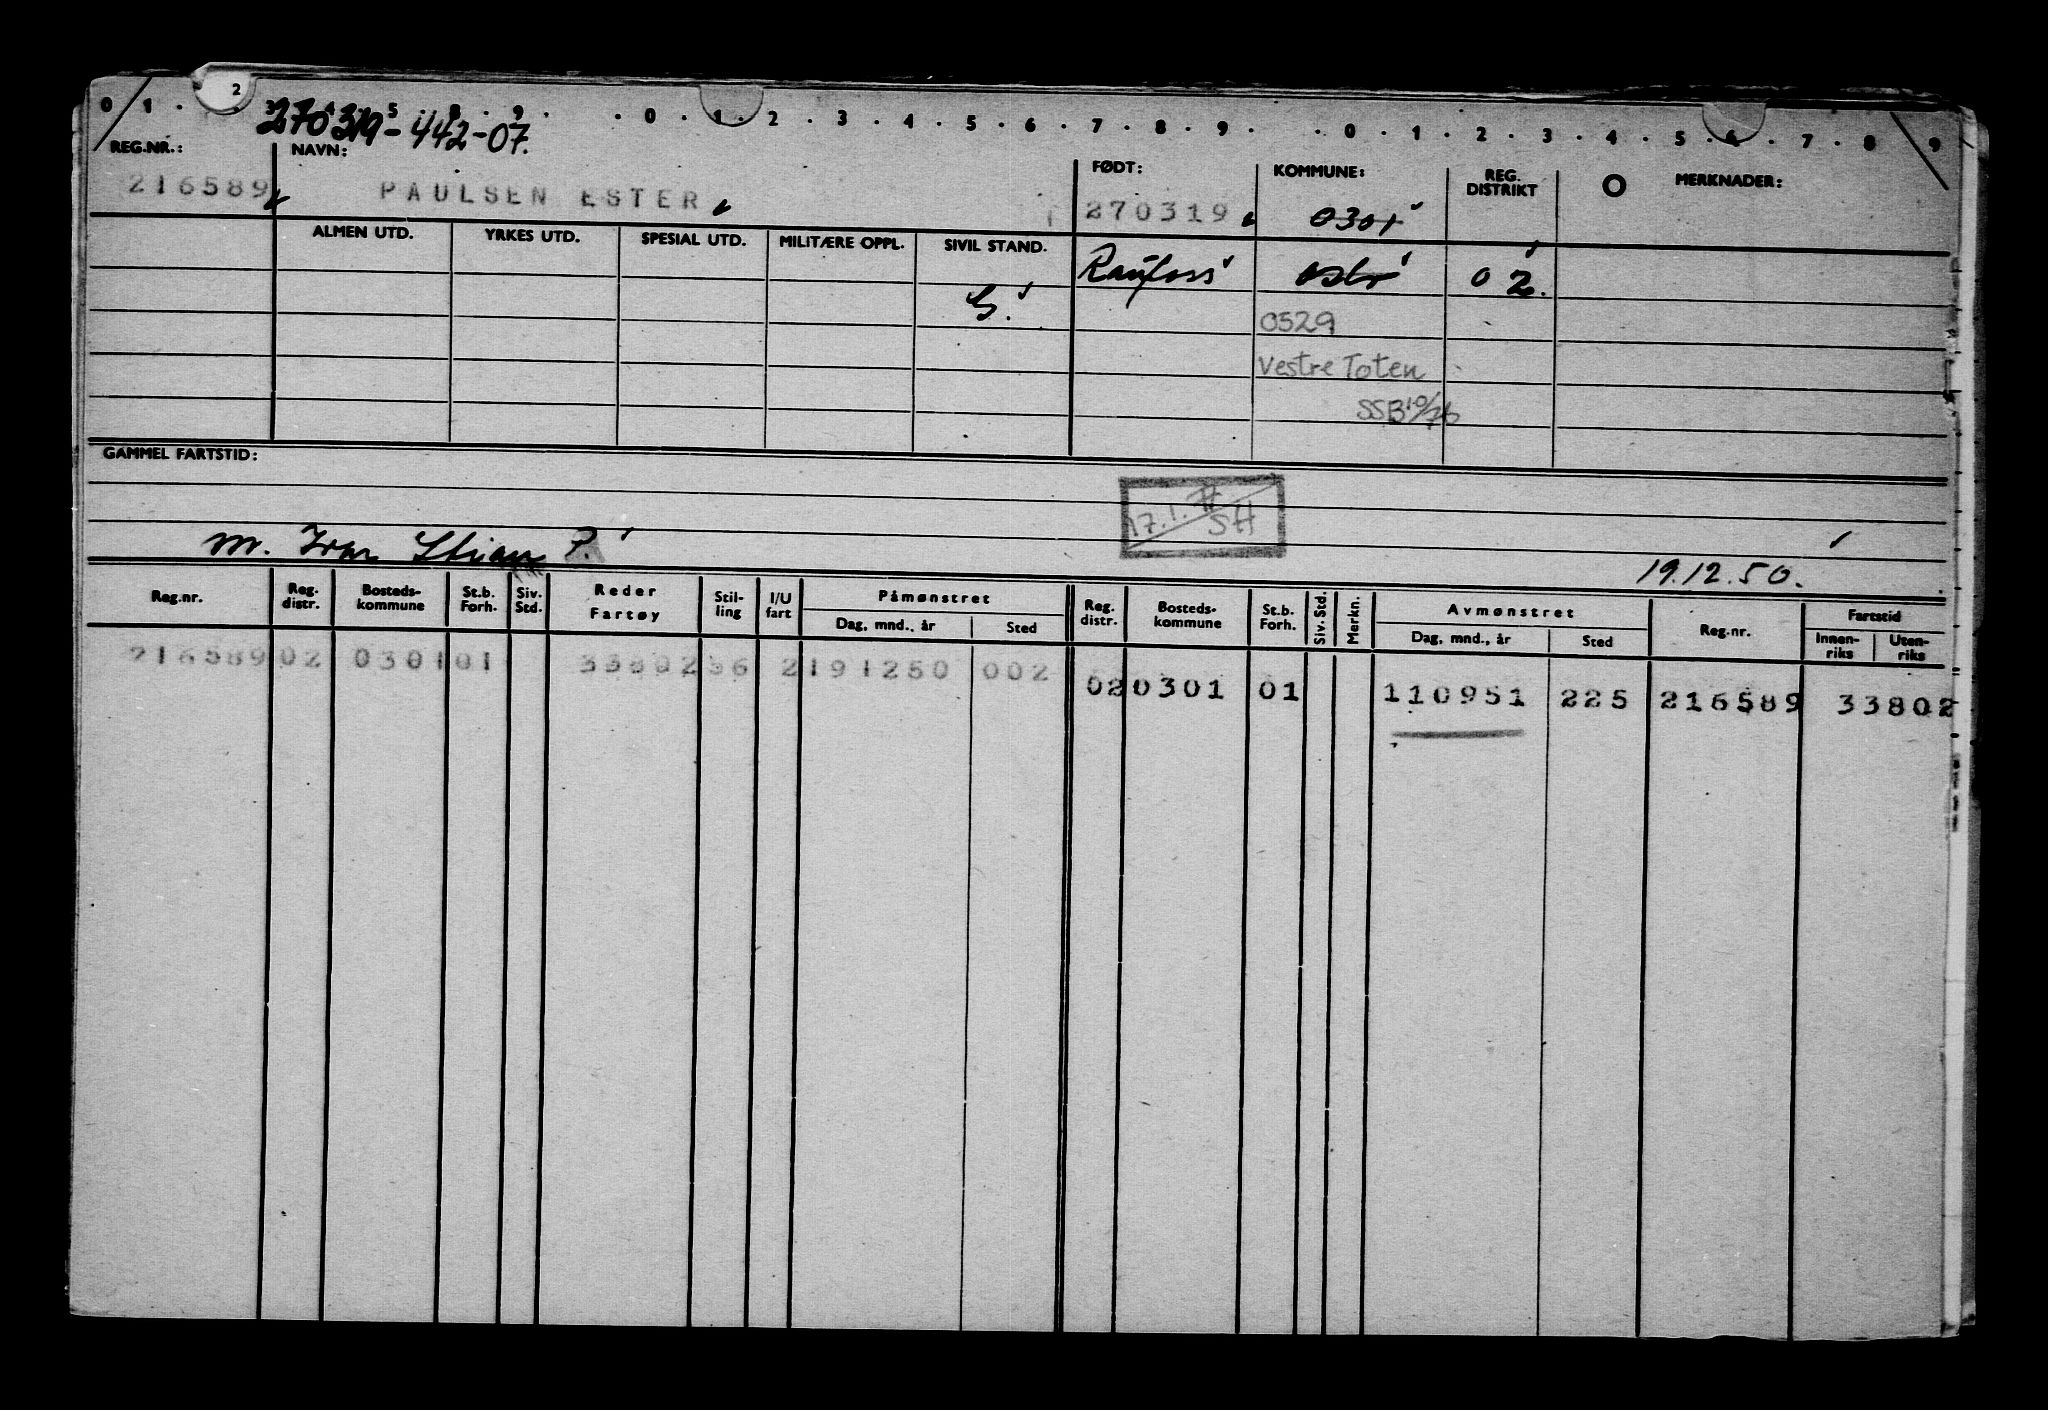 0 1 2 3 4 5 8 9 0 1 2 3 4 5 6 7 8 9 0 1 2 3 4 5 6 7 8 9
270319-442-07.
REG.NR.: NAVN: FØDT: KOMMUNE: REG. DISTRIKT O MERKNADER:
216589 PAULSEN ESTER 270319 0301
ALMEN UTD. YRKES UTD. SPESIAL UTD. MILITÆRE OPPL. SIVIL STAND.
Raufoss Oslo 02.
G.
0529
Vestre Toten
SSB 10/76
GAMMEL FARTSTID:
17.1. SH
m. Ivar Stian P.
19.12.50.
Reg.nr. Reg. distr. Bosteds-kommune St.b. Forh. Siv. Std. Reder Fartøy Stil-ling I/U fart Påmønstret Reg. distr. Bosteds-kommune St.b. Forh. Siv. Std. Merkn. Avmønstret Reg.nr. Fartstid
Dag, mnd., år Sted Dag, mnd., år Sted Innen-riks Uten-riks
216589 02 0301 01 33802 36 2 191250 002
02 0301 01 110951 225 216589 33802